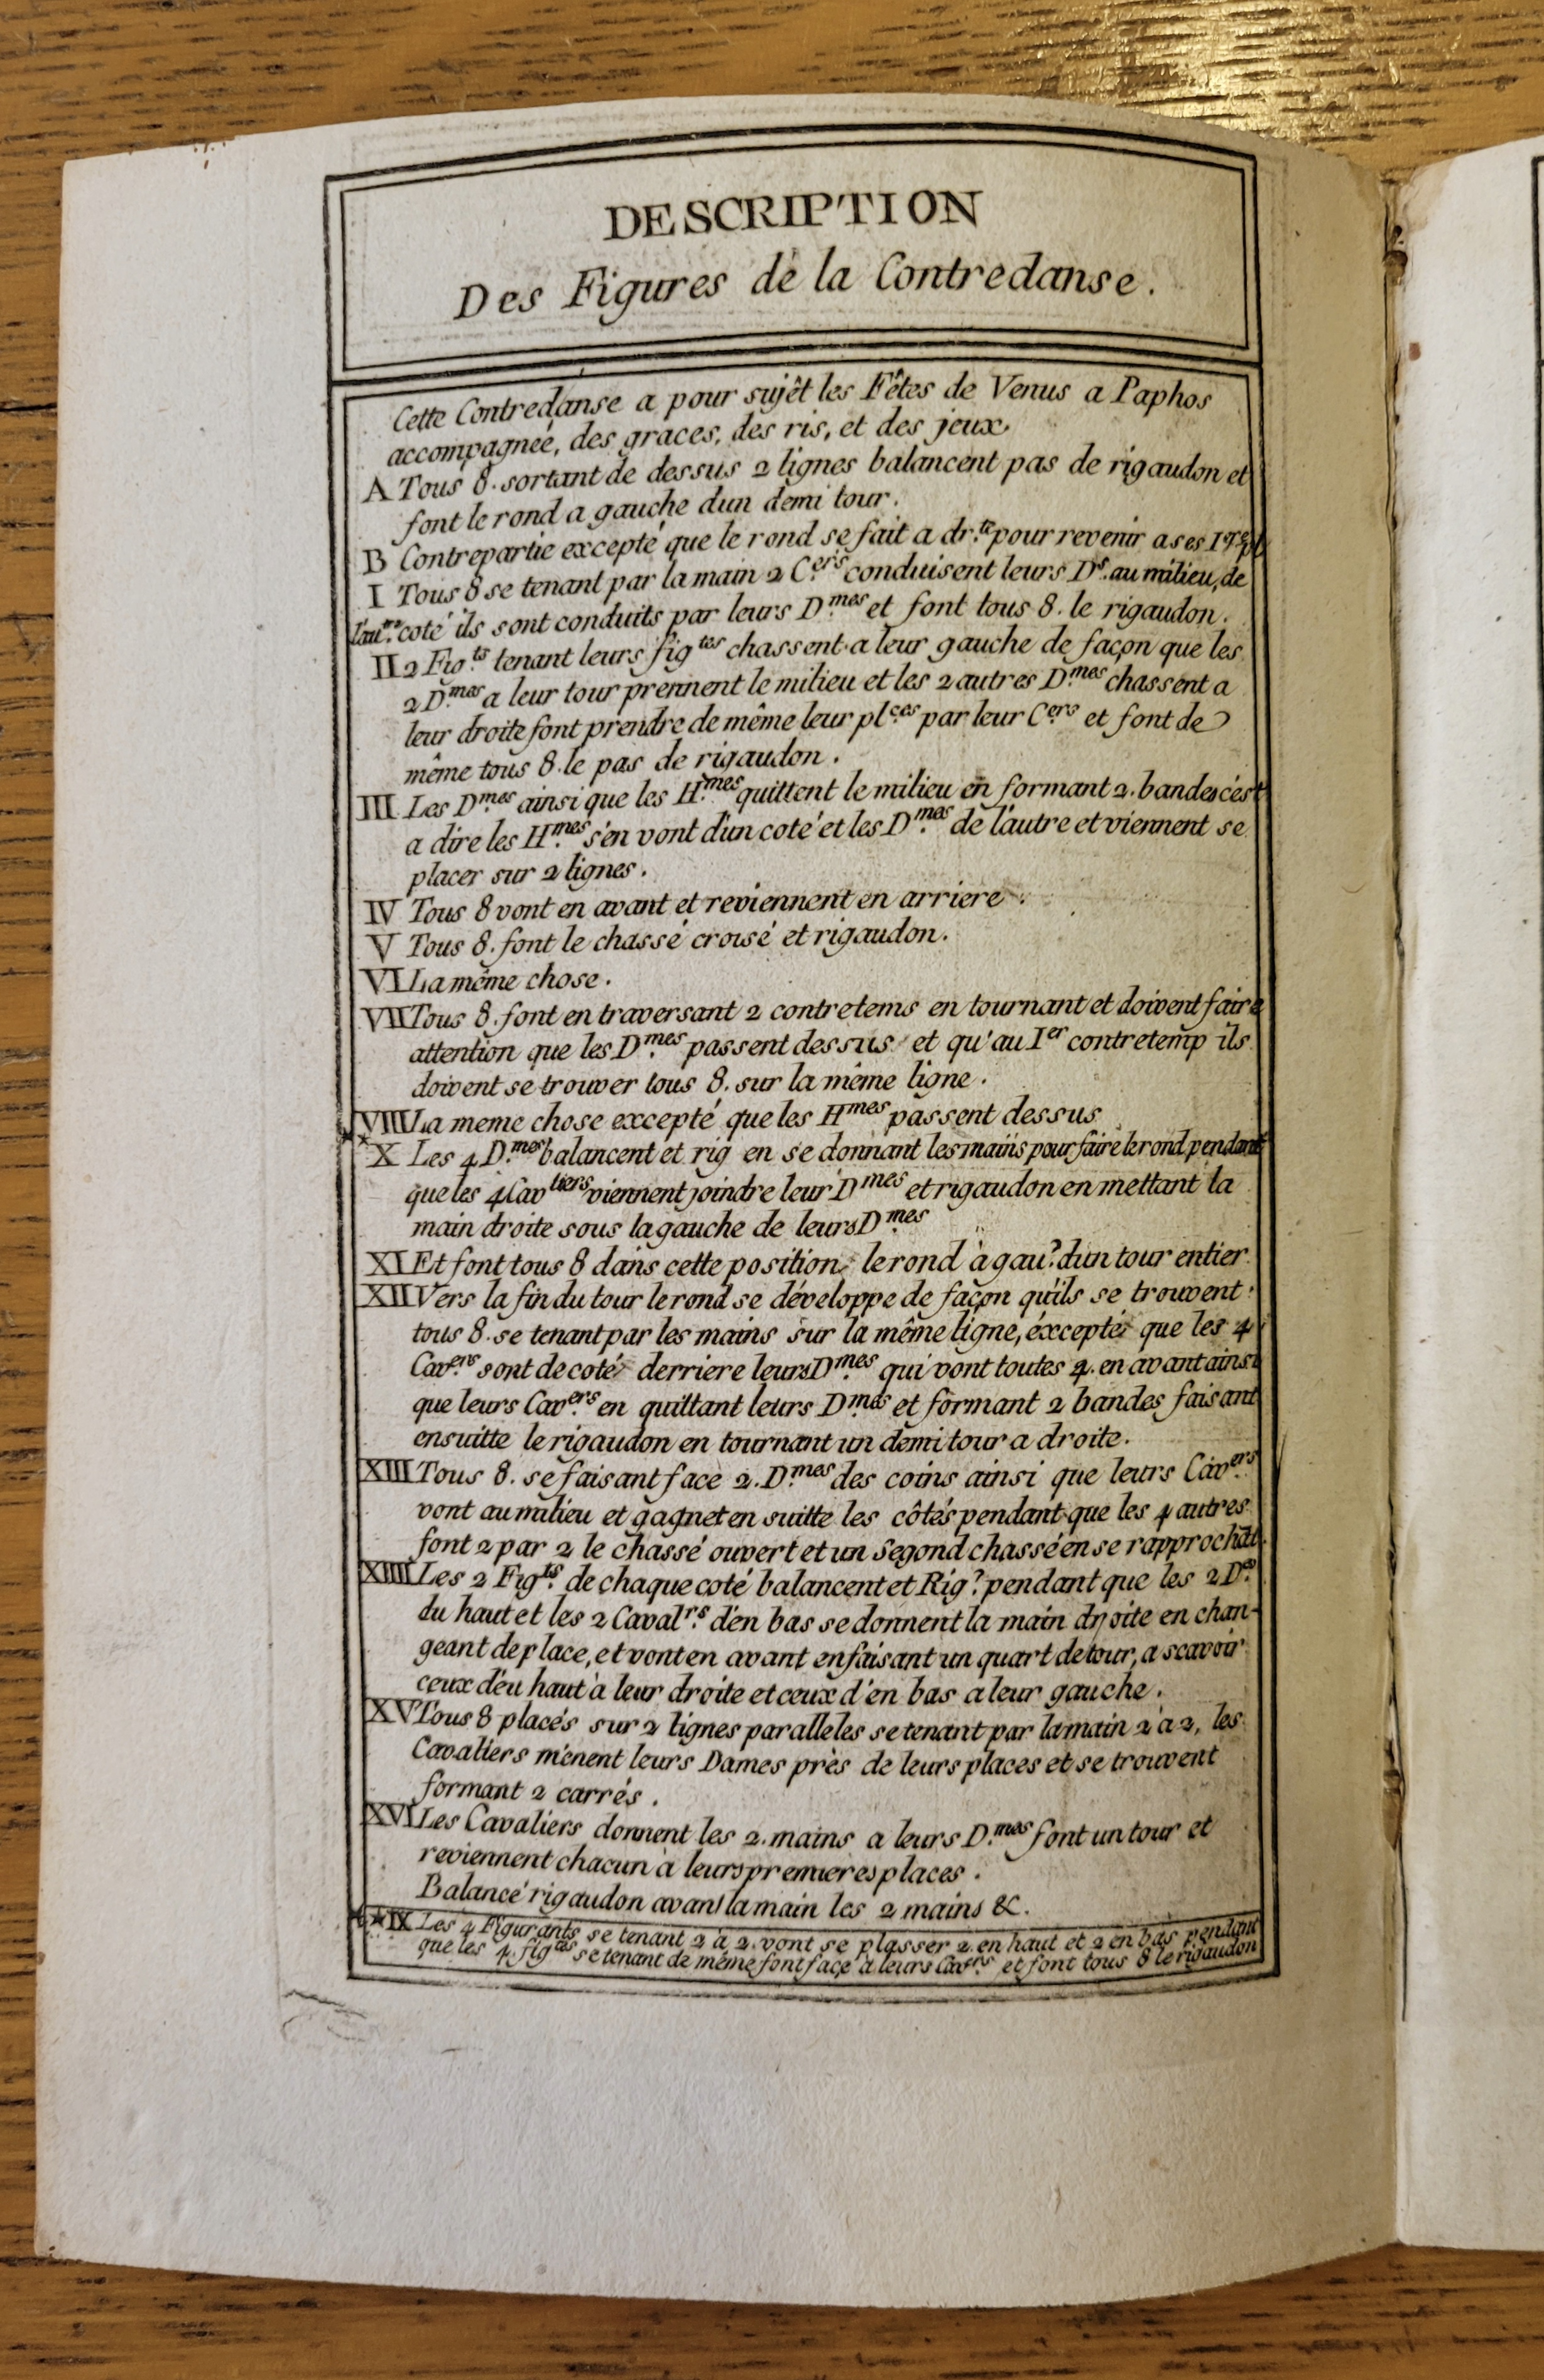 DESCRIPTION
Des Figures de la Contredanse.
Cette Contredanse a pour sujêt les Fêtes de Venus a Paphos
accompagneé, des graces, des ris, et des jeux
A Tous 8. sortant de dessus 2 lignes balancent pas de rigaudon et
font le rond a gauche dun demi tour.
B Contrepartie excepté que le rond se fait a dr.te pour revenir a ses Ieres pl
I Tous 8 se tenant par la main 2 C.ers conduisent leurs Ds. au milieu, de
l'autre coté ils sont conduits par leurs D.mes et font tous 8. le rigaudon.
II 2 Fig.ts tenant leurs fig.tes chassent a leur gauche de façon que les
2 D.mes a leur tour prennent le milieu et les 2 autres D.mes chassent a
leur droite font prendre de même leur pl.ces par leur C.ers et font de
même tous 8. le pas de rigaudon.
III Les D.mes ainsi que les H.mes quittent le milieu en formant 2. bandes c'est
a dire les H.mes s'en vont d'un coté et les D.mes de l'autre et viennent se
placer sur 2 lignes.
IV Tous 8 vont en avant et reviennent en arriere.
V Tous 8. font le chassé croisé et rigaudon.
VI La même chose.
VII Tous 8. font en traversant 2 contretems en tournant et doivent faire
attention que les D.mes passent dessus et qu'au Ier contretemp ils
doivent se trouver tous 8. sur la même ligne.
VIII La meme chose excepté que les Hmes passent dessus
* X Les 4 D.mes balancent et rig en se donnant les mains pour faire le rond pendant
que les 4 Cavliers viennent joindre leur Dmes et rigaudon en mettant la
main droite sous la gauche de leurs D.mes
XI Et font tous 8 dans cette position le rond à gau.e d'un tour entier.
XII Vers la fin du tour le rond se développe de façon qu'ils se trouvent
tous 8. se tenant par les mains sur la même ligne, éxcepté que les 4
Cav.ers sont de coté derriere leurs D.mes qui vont toutes 4. en avant ainsi
que leurs Cav.ers en quittant leurs D.mes et formant 2 bandes faisant
ensuitte le rigaudon en tournant un demi tour a droite.
XIII Tous 8. se faisant face 2. D.mes des coins ainsi que leurs Cav.ers
vont au milieu et gagnet en suitte les côtés pendant que les 4 autres
font 2 par 2 le chassé ouvert et un Segond chassé en se raprochãt.
XIIII Les 2 Fig.ts de chaque coté balancent et Rig.n pendant que les 2 D.es
du haut et les 2 Caval.rs d'en bas se donnent la main droite en chan-
geant de place, et vont en avant en faisant un quart de tour, a scavoir
ceux d'eu haut à leur droite et ceux d'en bas a leur gauche.
XV Tous 8 placés sur 2 lignes paralleles se tenant par la main 2 à 2, les
Cavaliers mènent leurs Dames près de leurs places et se trouvent
formant 2 carrés.
XVI Les Cavaliers donnent les 2. mains a leurs D.mes font un tour et
reviennent chacun à leurs premieres places.
Balancé rigaudon avant la main les 2 mains &c.
* IX Les 4 Figurants se tenant 2 à 2. vont se plasser 2. en haut et 2 en bas pendant
que les 4. figtes se tenant de même font façe a leurs Cavers et font tous 8 le rigaudon